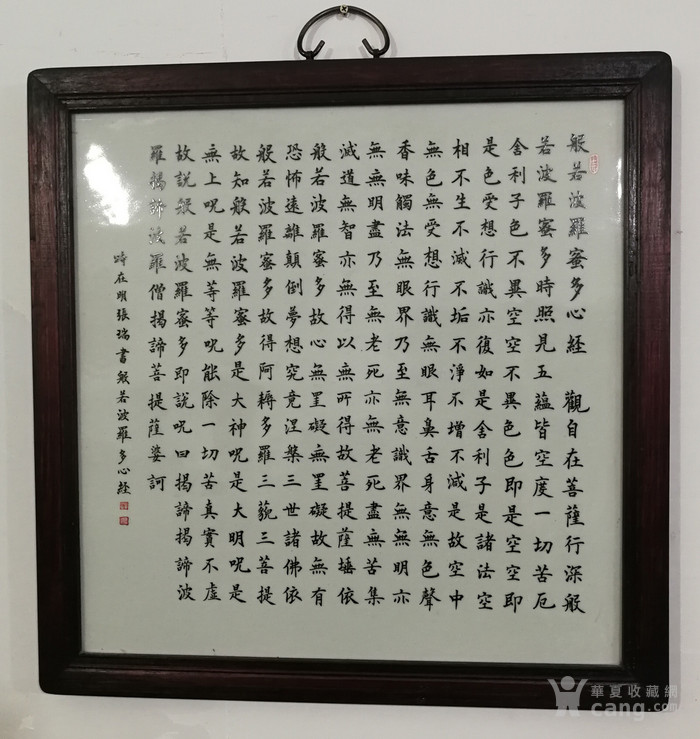 般若波羅蜜多心経 觀自在菩薩行深般
若波羅蜜多時照見五蘊皆空度一切苦厄
舍利子色不異空空不異色色即是空空即
是色受想行識亦復如是舍利子是諸法空
相不生不滅不垢不淨不增不減是故空中
無色無受想行識無眼耳鼻舌身意無色聲
香味觸法無眼界乃至無意識界無無明亦
無無明盡乃至無老死亦無老死盡無苦集
滅道無智亦無得以無所得故菩提薩埵依
般若波羅蜜多故心無罣礙無罣礙故無有
恐怖遠離顛倒夢想究竟涅槃三世諸佛依
般若波羅蜜多故得阿耨多羅三藐三菩提
故知般若波羅蜜多是大神呪是大明呪是
無上呪是無等等呪能除一切苦真實不虛
故説般若波羅蜜多即説呪曰揭諦揭諦波
羅揭諦波羅僧揭諦菩提薩婆訶
時在明張瑞書般若波羅多心経
華夏收藏網
cang.com